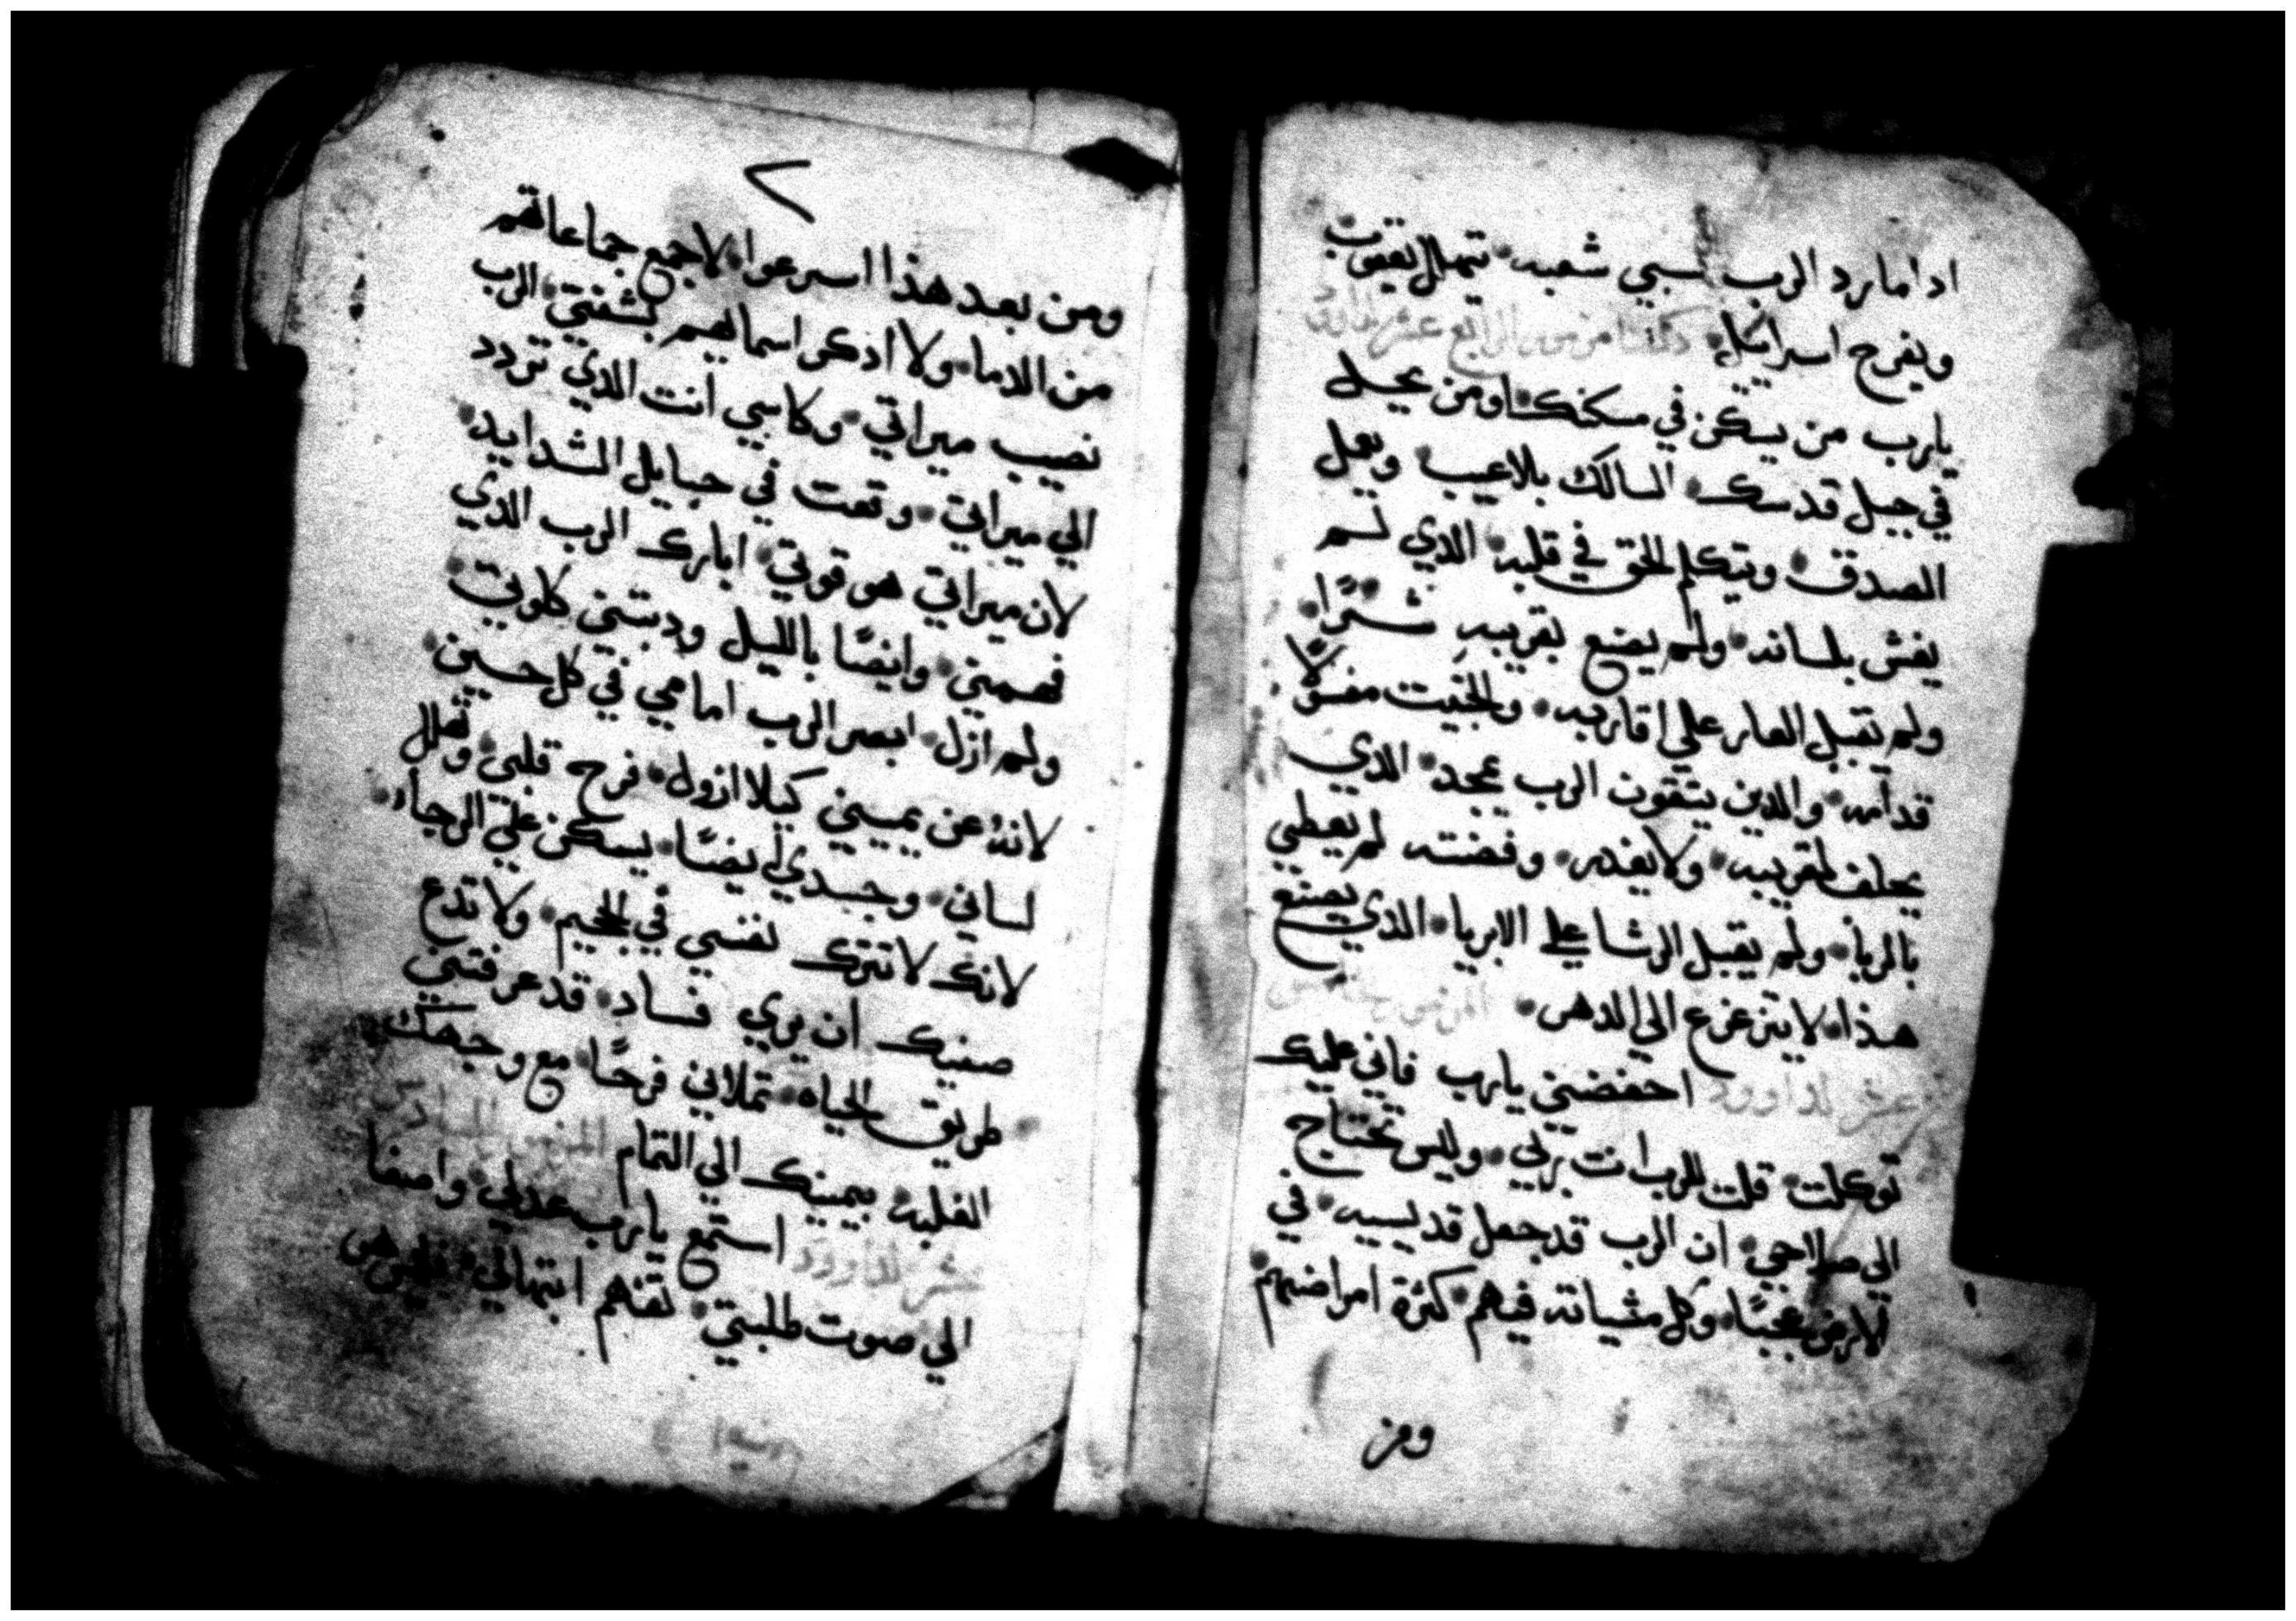 ادا مارد الرب سبي شعبه تهلل يعقوب
ويفرح اسراييل
يارب من يسكن في مسكنك ومن يحل
في جبل قدسك السالك بلاعيب ويعمل
الصدق ويتكلم الحق في قلبه الدي لم
يغش بلسانه ولم يصنع بقريبه شرًا
ولم تقبل العار علي اقاربه والخبيت مغـ
قدامه والدين يتقون الرب يمجد الدي
يحلف لقريبه ولايغدر وفضته لم يعطي
بالربا ولم يقبل الرشا علي الابريا الدي يصنع
هدا لايتزعزع الي الدهر
عشر لداوود احفضني يارب فاني عليك
توكلت قلت للرب انت ربي وليس تحتاج
الي صلاحي ان الرب قد جعل قديسيه في
الارض عجبًا وكل مشياته فيهم كثرة امراضهم
ومن
٧
ومن بعد هذا اسرعوا لاجمع جماعاتهم
من الدما ولا ادكر اسمايهم بشفتي الرب
نصيب ميراتي وكاسي انت الدي تردد
الي ميراتي وقعت في حبايل الشدايد
لان ميراتي هو قوتي ابارك الرب الدي
فهمني وايضًا بالليل ودبتني كلوتي
ولم ازل ابصر الرب امامي في كل حين
لانهُ عن يميني كيلا ازول فرح قلبي وتهلل
لساني وجسدي ايضًا يسكن علي الرجاء
لانك لاتترك نفسي في الجحيم ولا تدع
صفيك ان يري فساد قد عرفتني
طريق الحياه تملاني فرحًا مع وجهك
الغلبه بيمينك الي التمام المزمور السادس
عشر لداوود استمع يارب عدلي واصغا
الي صوت طلبتي تفهم ابتهالي فليس هي